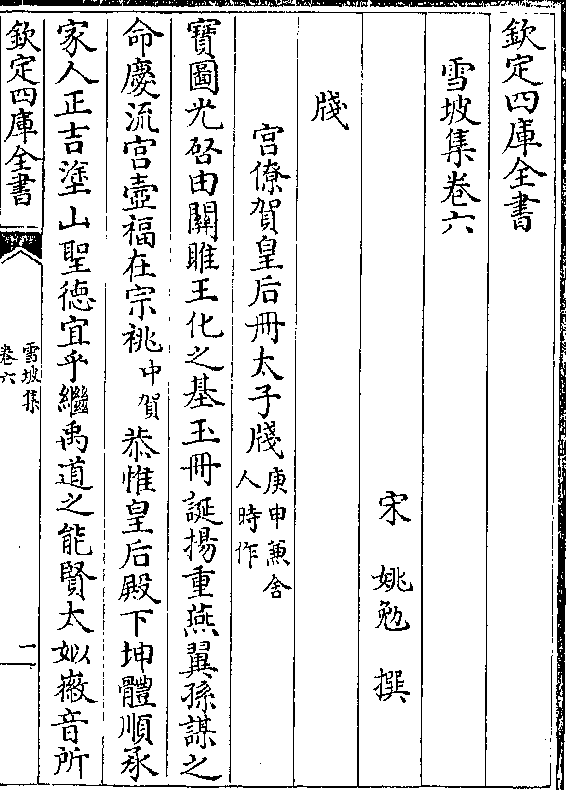 欽定四庫全書
雪坡集卷六
宋 姚勉 撰
牋
宫僚賀皇后冊太子牋庚申兼舍人時作
寶圖光啓由關雎王化之基玉冊誕揚重燕翼孫謀之
命慶流宫壼福在宗祧中賀恭惟皇后殿下坤體順承
家人正吉塗山聖徳宜乎繼禹道之能賢太姒徽音所
欽定四庫全書
雪坡集
卷六
一